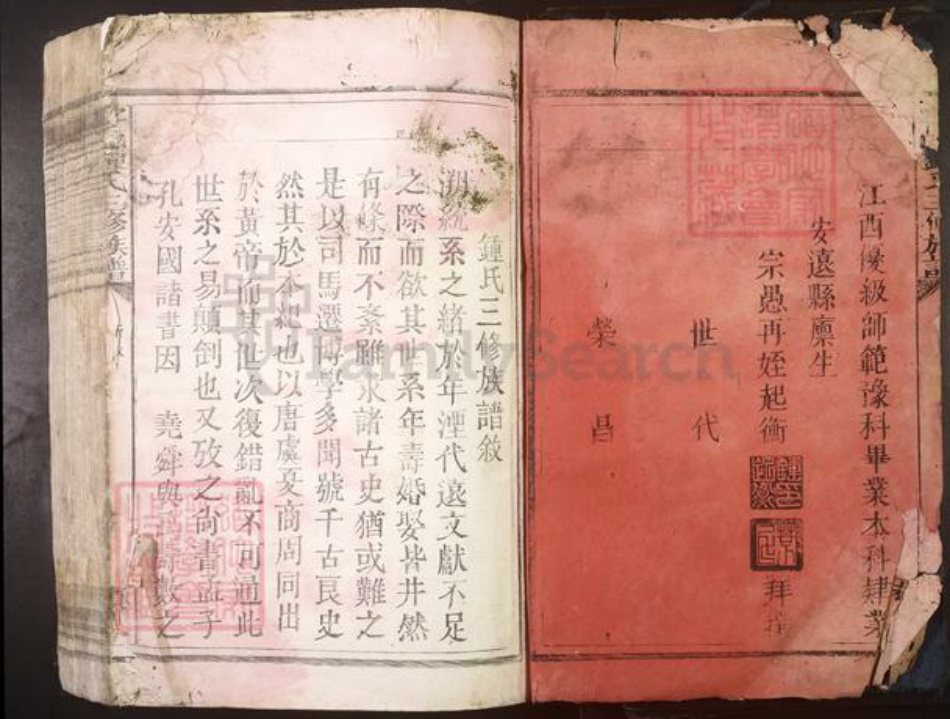 江西優級師範豫科畢業本科肄業
安遠縣廪生
宗愚再姪起衡
拜撰
世代
榮昌
鍾氏三修族譜敘
溯統系之緒於年湮代遠文獻不足
之際而欲其世系年壽婚娶皆井然
有條而不紊雖求諸古史猶或難之
是以司馬遷博學多聞號千古良史
然其於本紀也以唐虞夏商周同出
於黃帝而其世次復錯亂不可通此
世系之易顛倒也又攷之尚書孟子
孔安國諸書因 堯舜與 壽數之
FamilySearch